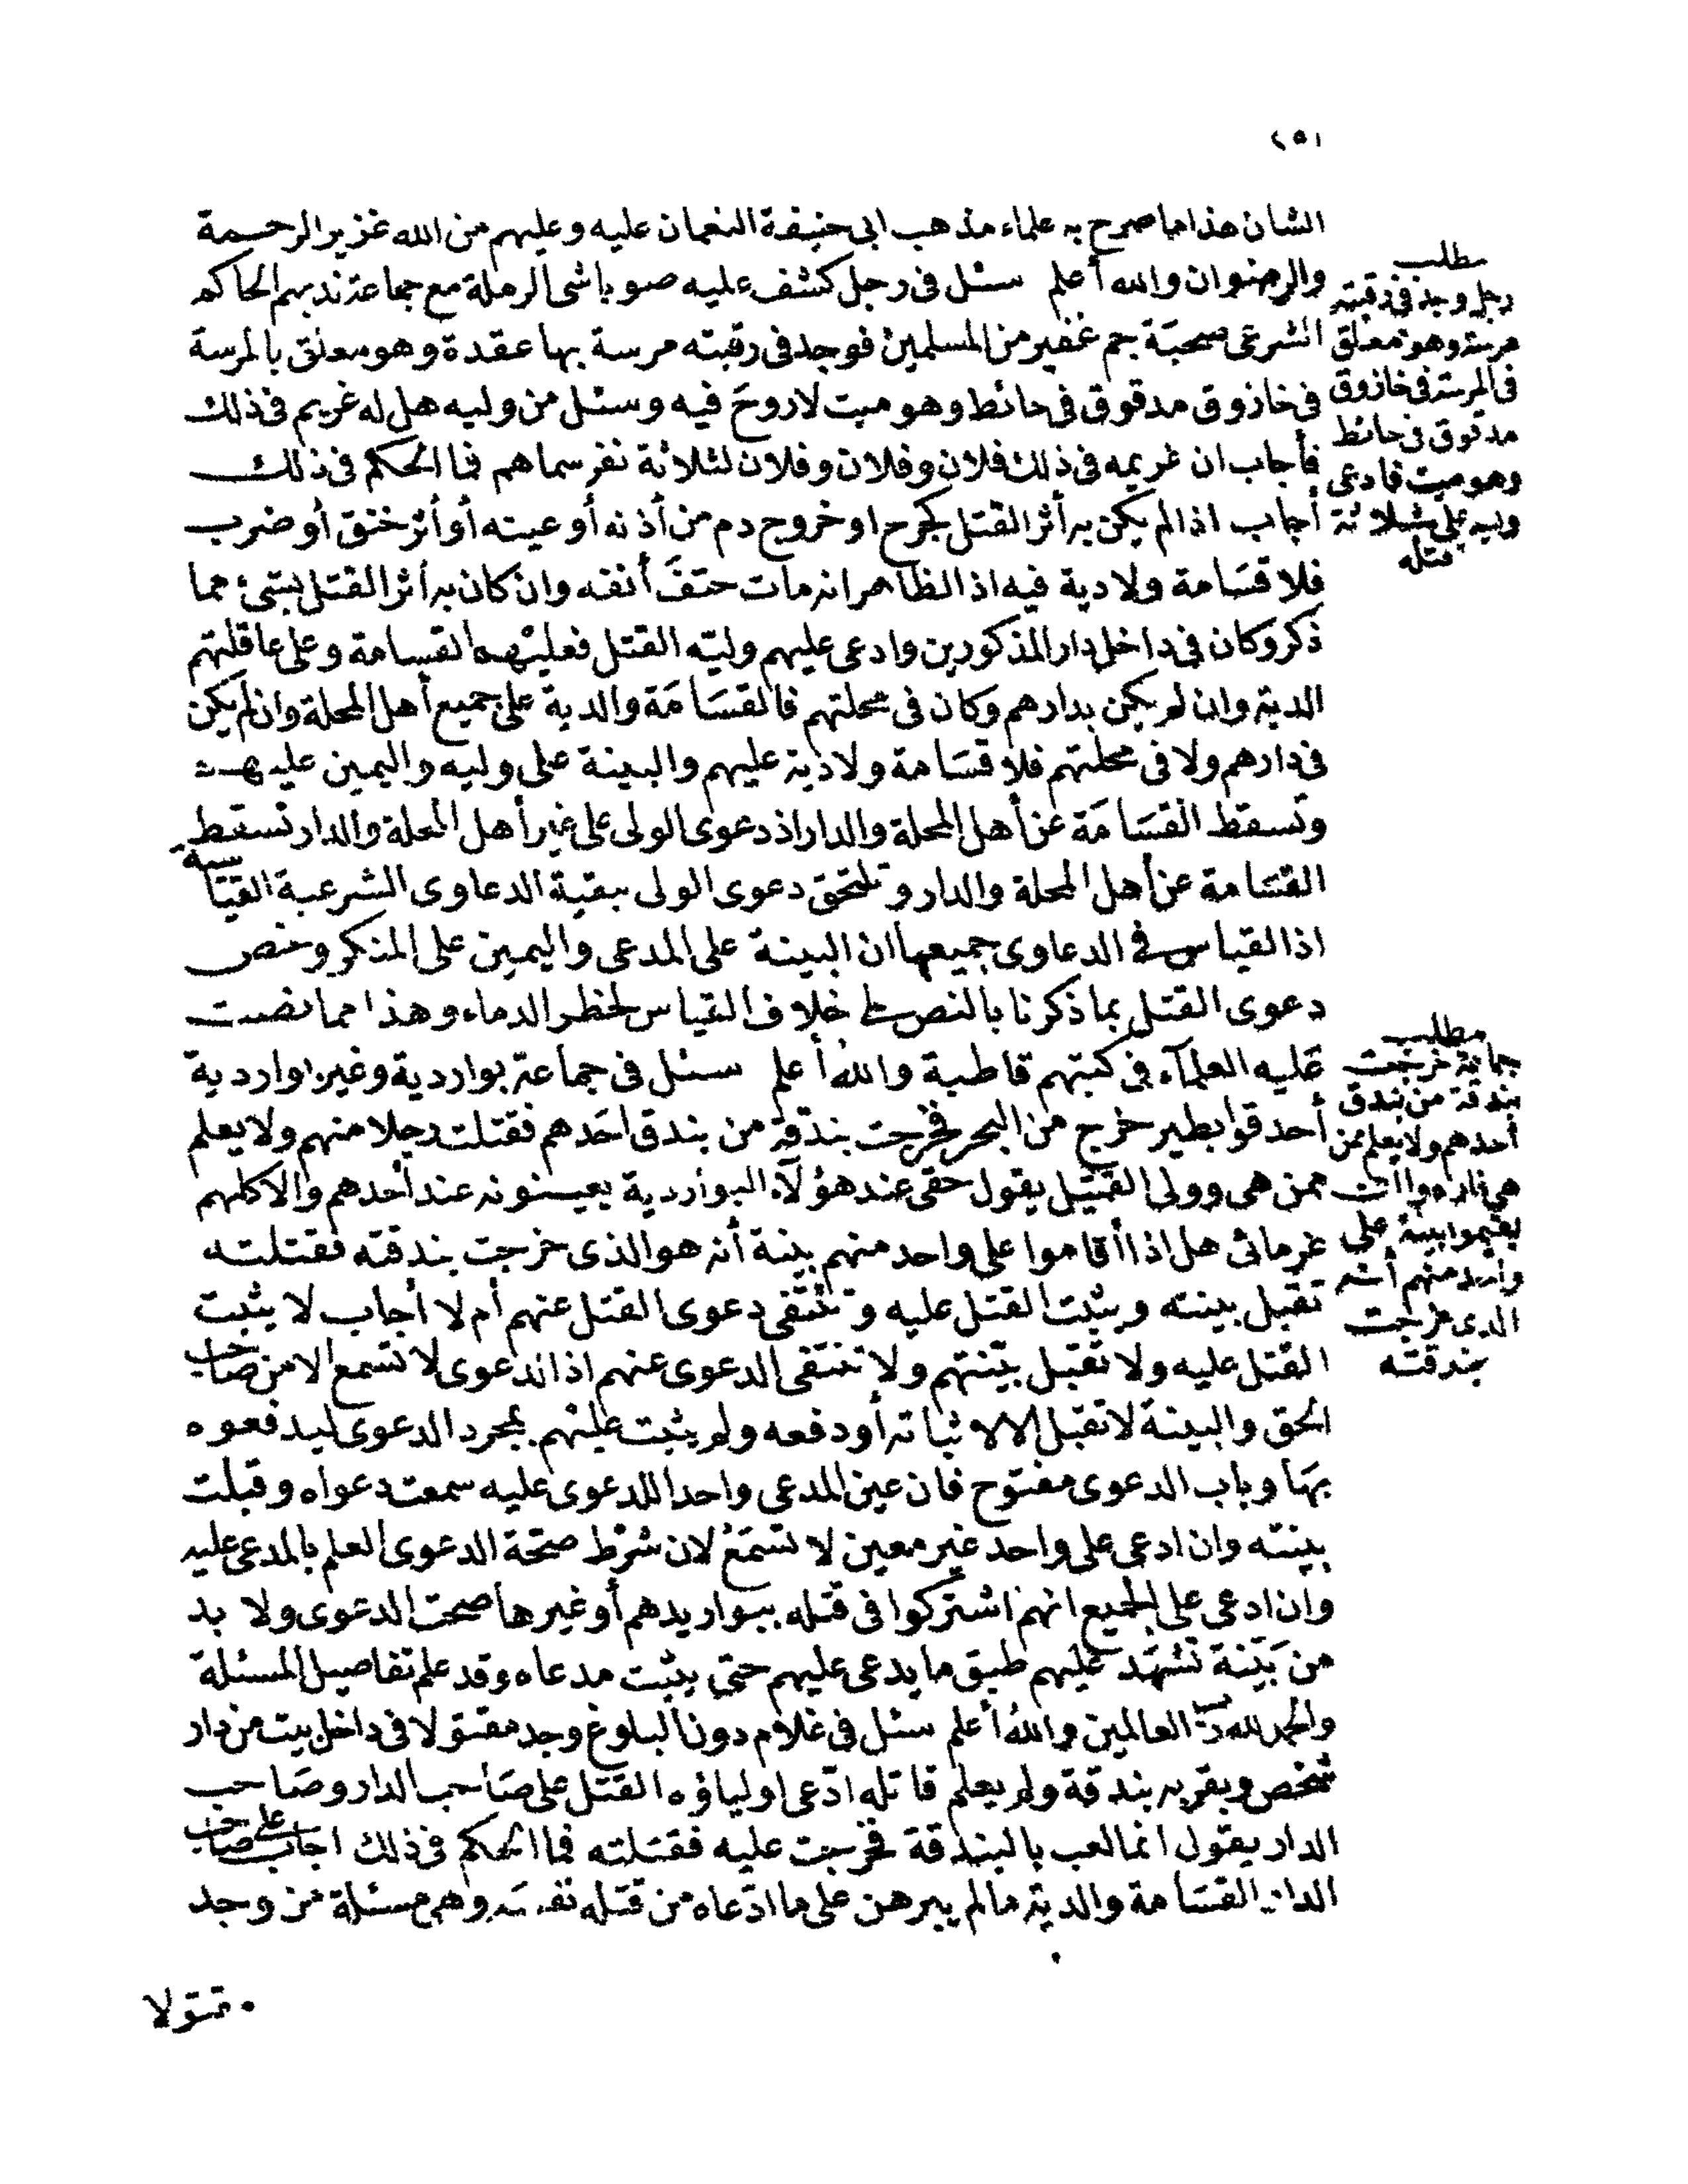 ٢٥١
الشان هذا ما صرح به علماء مذهب ابى حنيفة النعمان عليه وعليهم من الله غزير الرحمة
والرضوان والله أعلم سئل فى رجل كشف عليه صوباشى الرملة مع جماعة ندبهم الحاكم
الشرعى صحبة جم غفير من المسلمين فوجد فى رقبته مرسة بها عقدة وهو معلق بالمرسة
فى خازوق مدقوق فى حائط وهو ميت لا روح فيه وسئل من وليه هل له غريم فى ذلك
فأجاب ان غريمه فى ذلك فلان وفلان وفلان لثلاثة نفر سماهم فما الحكم فى ذلك
أجاب اذا لم يكن به أثر القتل كجرح او خروج دم من أذنه أو عينه أو أثر خنق أو ضرب
فلا قسامة ولا دية فيه اذ الظاهر انه مات حتف أنفه وان كان به أثر القتل بشئ مما
ذكر وكان فى داخل دار المذكورين وادعى عليهم وليه القتل فعليهم القسامة وعلى عاقلتهم
الدية وان لم يكن بدارهم وكان فى محلتهم فالقسامة والدية على جميع أهل المحلة وان لم يكن
فى دارهم ولا فى محلتهم فلا قسامة ولا دية عليهم والبينة على وليه واليمين عليهم
وتسقط القسامة عن أهل المحلة والدار اذ دعوى الولى على غير أهل المحلة والدار تسقط
القسامة عن أهل المحلة والدار وتلتحق دعوى الولى ببقية الدعاوى الشرعية القياسية
اذ القياس فى الدعاوى جميعها ان البينة على المدعى واليمين على المنكر وخص
دعوى القتل بما ذكرنا بالنص على خلاف القياس لخطر الدماء وهذا مما نصت
عليه العلمآء فى كتبهم قاطبة والله أعلم سئل فى جماعة بواردية وغير بواردية
أحدقوا بطير خرج من البحر فخرجت بندقة من بندق احدهم فقتلت رجلا منهم ولا يعلم
ممن هى وولى القتيل يقول حقى عند هؤلآء البواردية يعينونه عند أحدهم والا كلهم
غرمائى هل اذا أقاموا على واحد منهم بينة أنه هو الذى خرجت بندقته فقتلته
تقبل بينته ويثبت القتل عليه وتنتفى دعوى القتل عنهم أم لا أجاب لا يثبت
القتل عليه ولا تقبل بينتهم ولا تنتفى الدعوى عنهم اذ الدعوى لا تسمع الا من صاحب
الحق والبينة لا تقبل الا لاثباته أو دفعه ولم يثبت عليهم بمجرد الدعوى ليدفعوه
بها وباب الدعوى مفتوح فان عين المدعى واحدا للدعوى عليه سمعت دعواه وقبلت
بينته وان ادعى على واحد غير معين لا تسمع لان شرط صحة الدعوى العلم بالمدعى عليه
وان ادعى على الجميع انهم اشتركوا فى قتله ببواريدهم أو غيرها صحت الدعوى ولا بد
من بينة تشهد عليهم طبق ما يدعى عليهم حتى يثبت مدعاه وقد علم تفاصيل المسئلة
والحمد لله رب العالمين والله أعلم سئل فى غلام دون البلوغ وجد مقتولا فى داخل بيت من دار
شخص وبقربه بندقة ولم يعلم قاتله ادعى اولياؤه القتل على صاحب الدار وصاحب
الدار يقول انما لعب بالبندقة فخرجت عليه فقتلته فما الحكم فى ذلك اجاب على صاحب
الدار القسامة والدية ما لم يبرهن على ما ادعاه من قتله نفسه وهى مسئلة من وجد
مقتولا
مطلب
رجل وجد فى رقبته
مرسة وهو معلق
فى المرسة فى خازوق
مدقوق فى حائط
وهو ميت فادعى
وليه على ثلاثة
قتله
مطلب
جماعة خرجت
بندقة من بندق
أحدهم ولا يعلم ممن
هى
يقيموا بينة على
واحد منهم أنه
الذى خرجت
بندقته